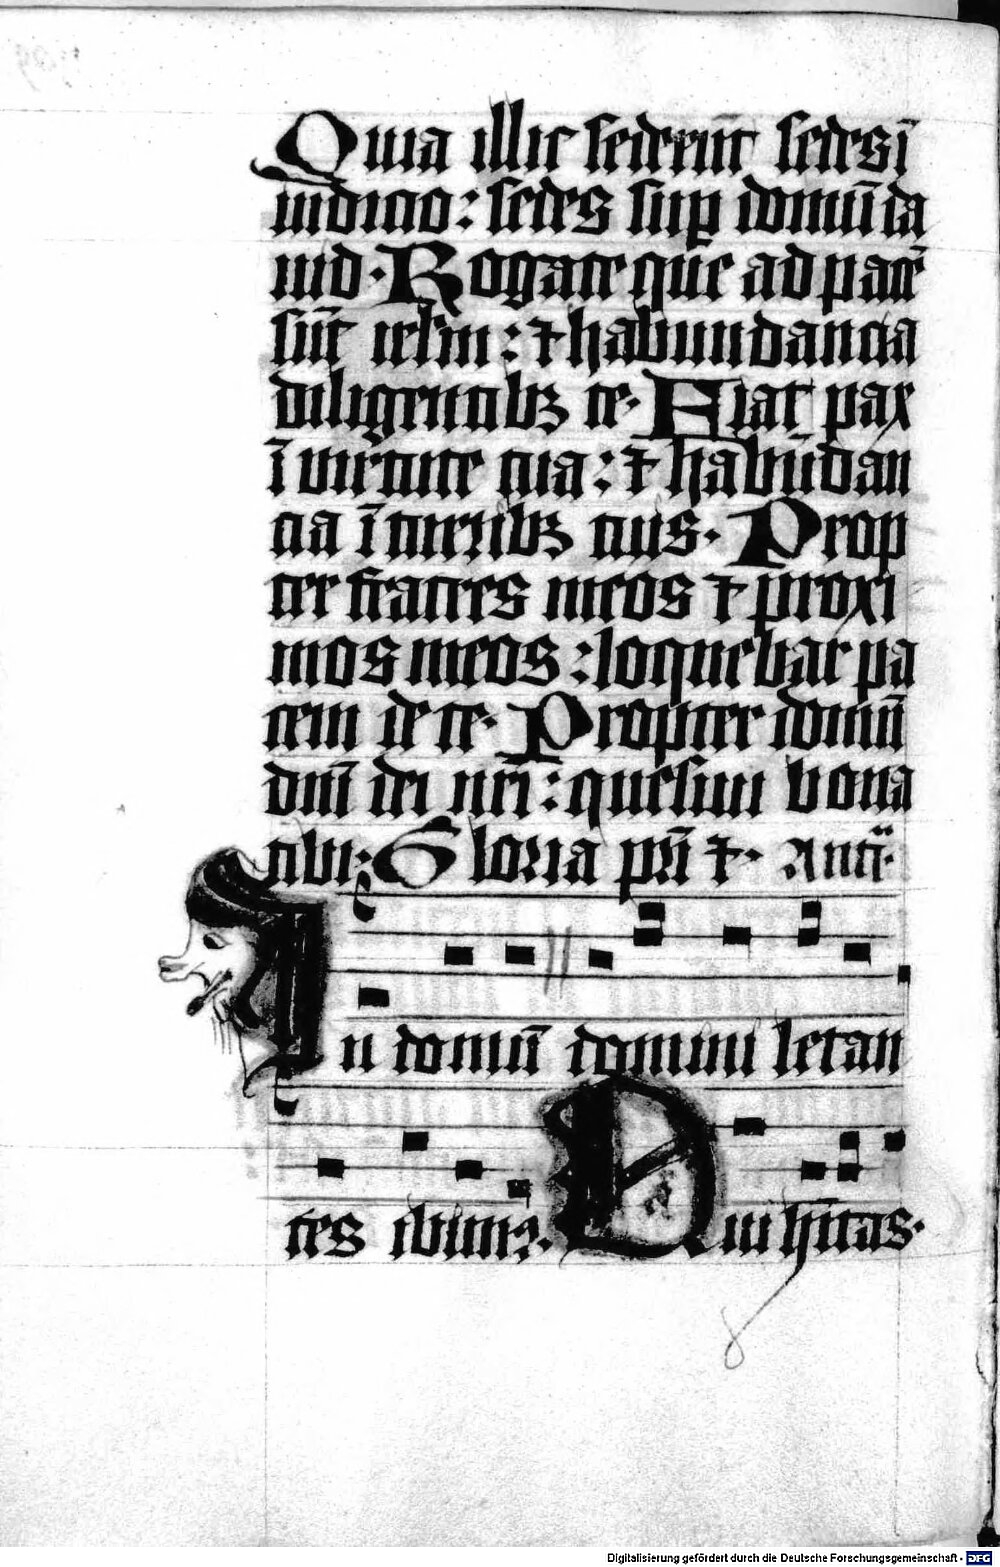 Quia illic sederūt sedes ī
iudicio: sedes suꝑ domū da
uid. Rogate que ad pacē
sūt ierlm: ⁊ habundancia
diligentibꝫ te. Fiat pax
ī uirtute tua: ⁊ habūdan
cia ī turribꝫ tuis. Prop
ter fratres meos ⁊ proxi
mos meos: loquebar pa
cem de te. Propter domū
dnī dei nrī: quesiui bona
tibi. Gloria pri ⁊. Anā.
In domū domini letan
tes ibimꝰ. Qui hītas.
Digitalisierung gefördert durch die Deutsche Forschungsgemeinschaft - DFG